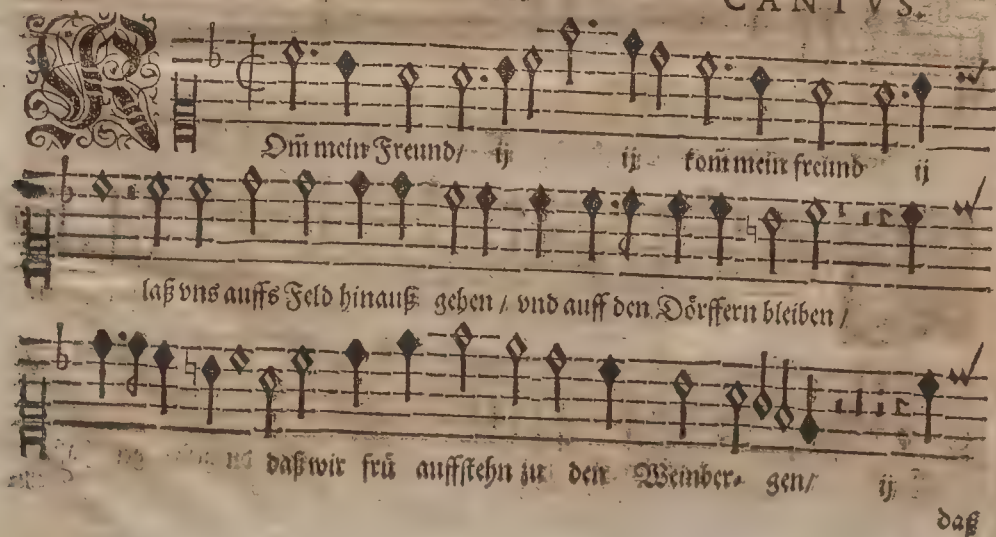 CANTVS.
KOm̃ mein Freund/ ij ij kom̃ mein freund ij
laß vns auffs Feld hinauß gehen / vnd auff den Dörffern bleiben /
daß wir frü auffstehn zu den Weinber- gen/ ij
daß